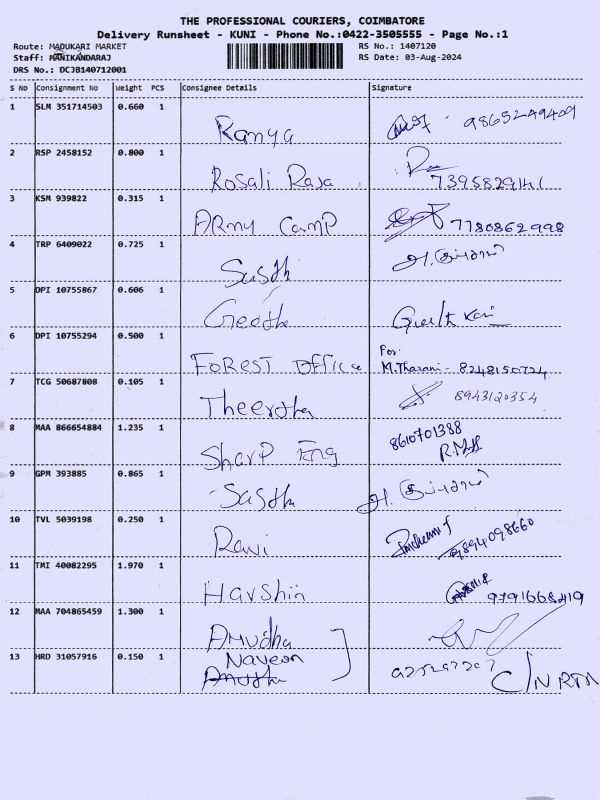 THE PROFESSIONAL COURIERS, COIMBATORE
Delivery Runsheet - KUNI - Phone No.:0422-3505555 - Page No.:1
Route: MADUKARI MARKET RS No.: 1407120
Staff: MANIKANDARAJ RS Date: 03-Aug-2024
DRS No.: DCJB140712001
S No Consignment No Weight PCS Consignee Details Signature
1 SLM 351714503 0.660 1
Ramya
2 RSP 2458152 0.800 1
Rosali Rasa 7395829141
3 KSM 939822 0.315 1
ARmy Camp 7780862998
4 TRP 6409022 0.725 1
Sasthi
5 DPI 10755867 0.606 1
Geetha
6 DPI 10755294 0.500 1
For:
FOREST Office M.Tharani - 8248150724
7 TCG 50687808 0.105 1
Theertha 8943120354
8 MAA 866654884 1.235 1
8610701388
Sharp Eng
9 GPM 393885 0.865 1
Sastha
10 TVL 5039198 0.250 1
Ravi 9894098660
11 TMI 40082295 1.970 1
Harshin 9791668419
12 MAA 704865459 1.300 1
Anudha
13 HRD 31057916 0.150 1
Naveen
C/N RTN